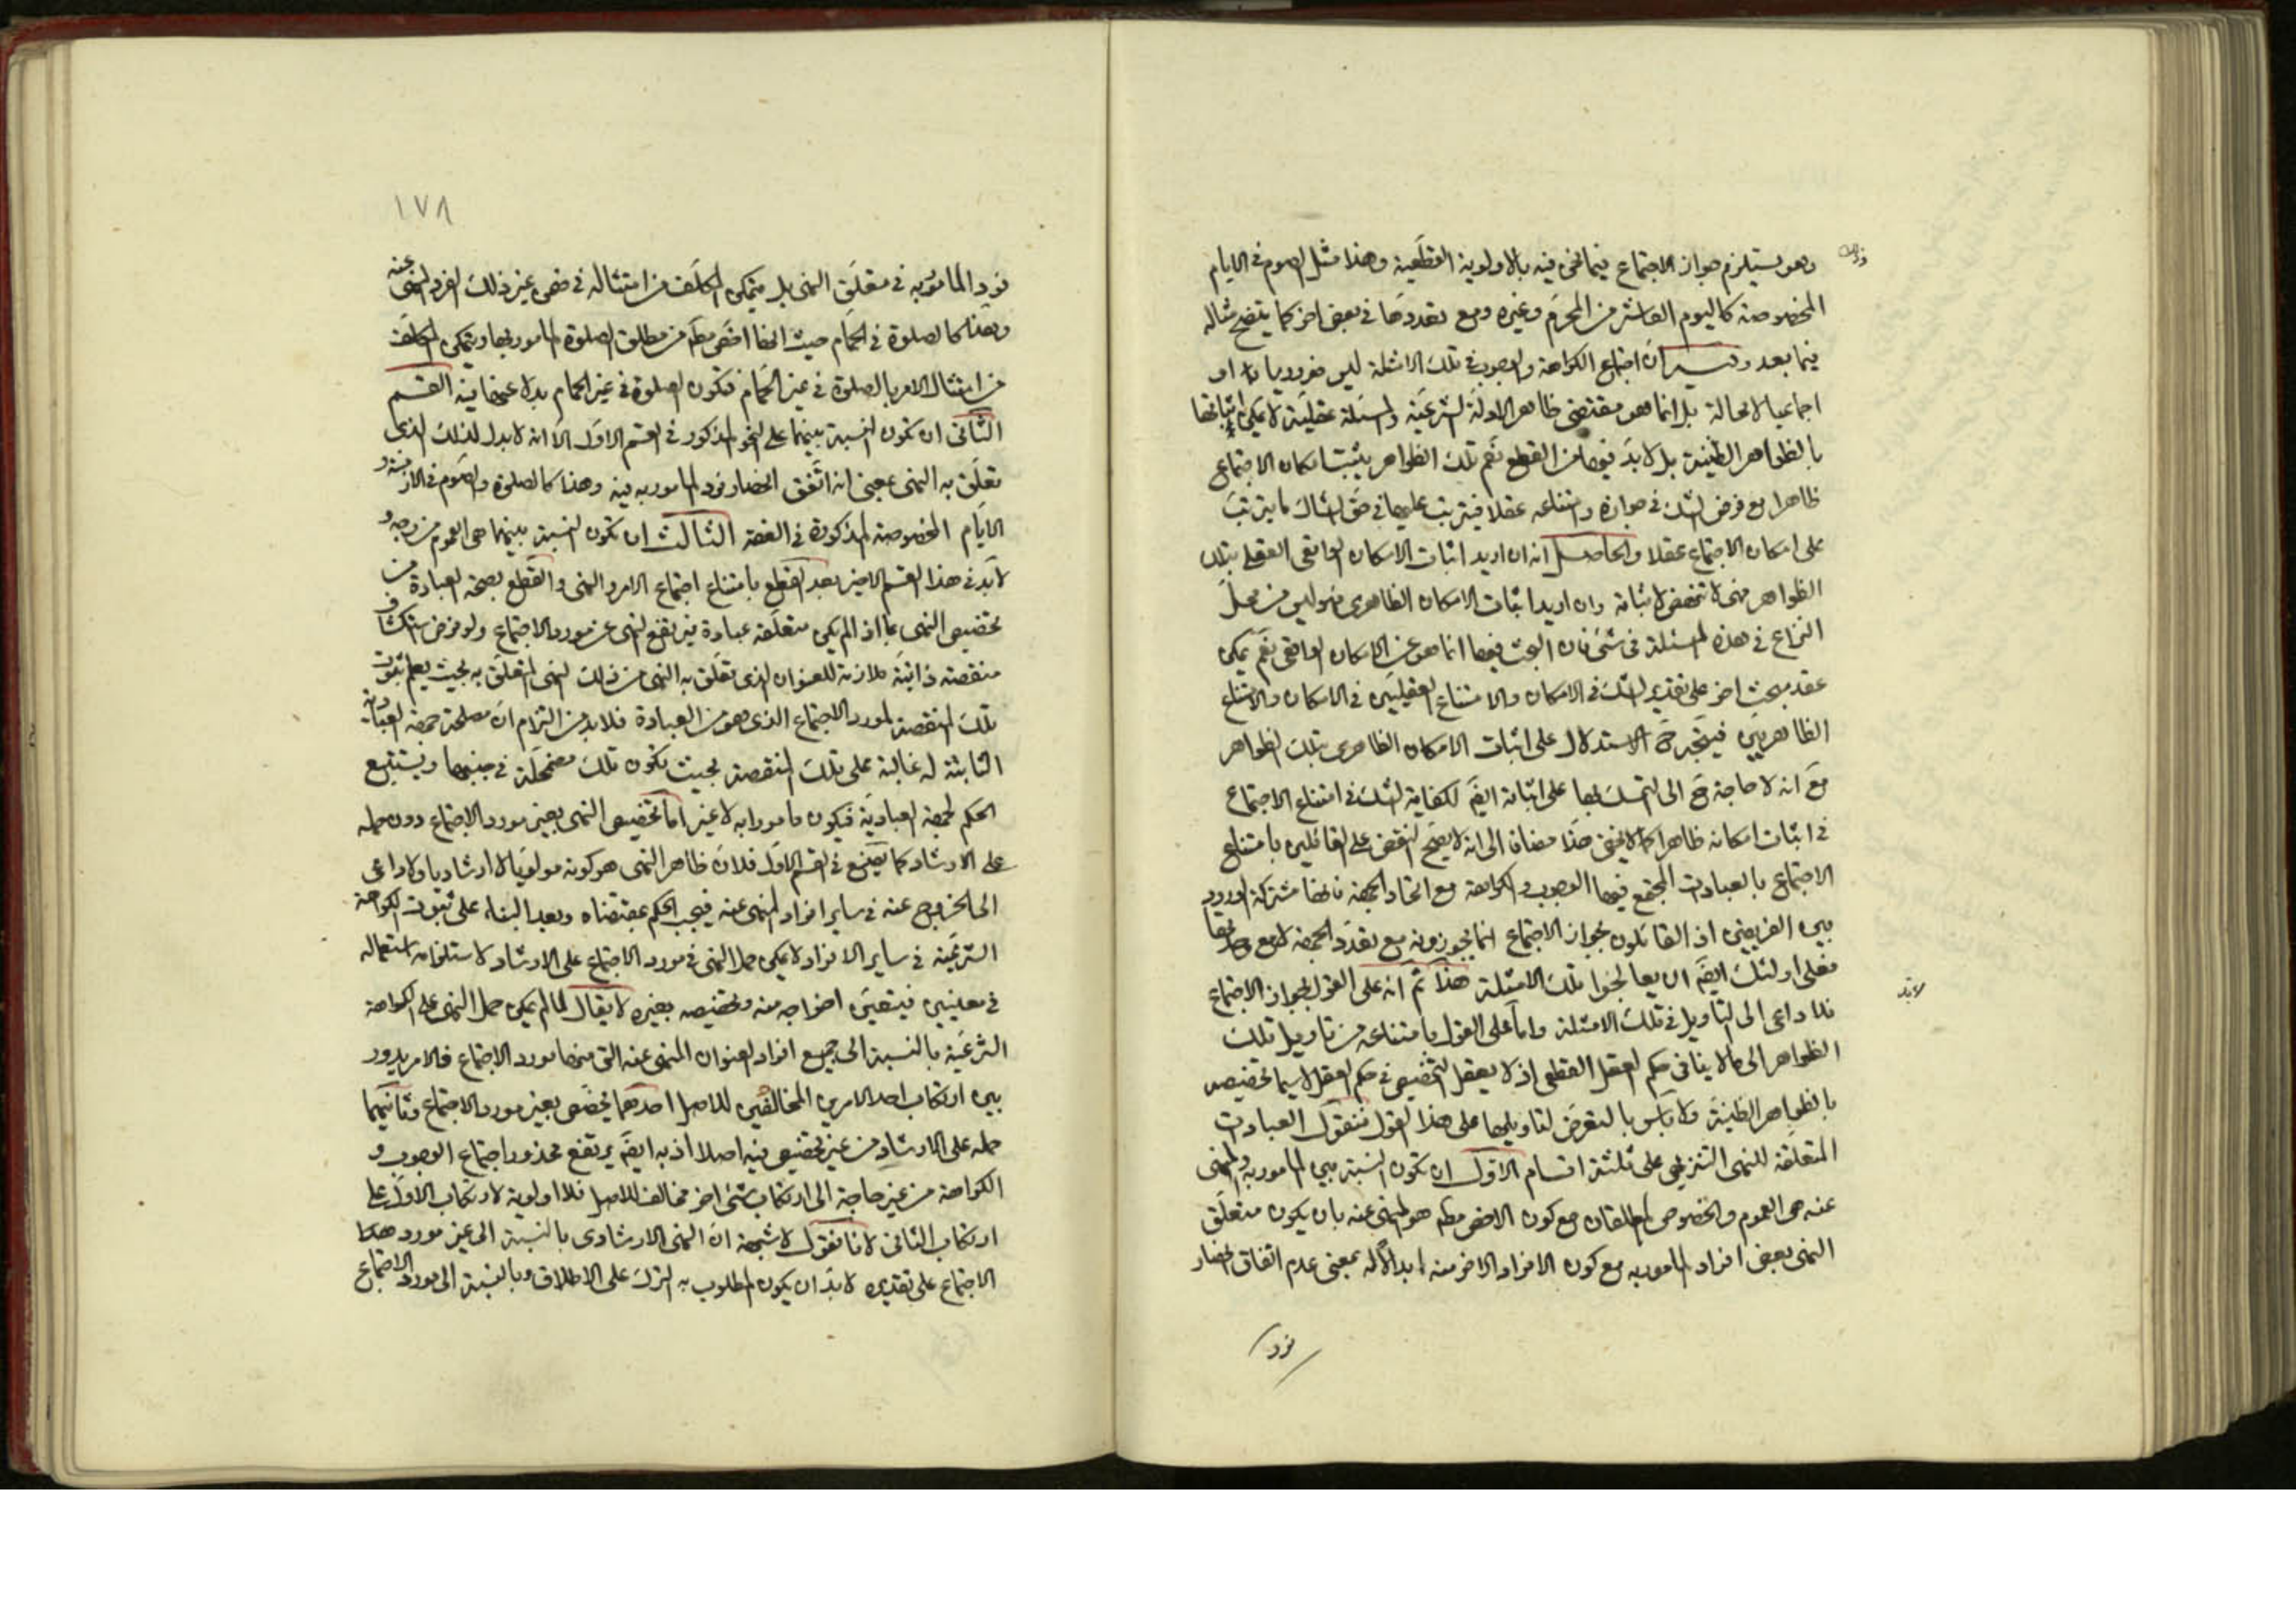 وهو يستلزم جواز الاجتماع فيما نحن فيه بالاولوية القطعية وهذا مثل الصوم في الايام
المخصوصة كاليوم العاشر من المحرم وغيره ومع تعددها في بعض اخر كما يتضح مثاله
فيما بعد ان اجتماع الكراهة والوجوب في تلك الامثلة ليس ضروريا او
اجماعيا لا محالة بل انما هو مقتضى ظاهر الادلة الشرعية والمسئلة عقلية لا يمكن اثباتها
بالظواهر الظنية بل لا بد فيها من القطع نعم تلك الظواهر يثبت امكان الاجتماع
ظاهرا مع فرض الشك في جوازه وامتناعه عقلا فيترتب عليها في حق الشاك ما يترتب
على امكان الاجتماع عقلا والحاصل انه ان اريد اثبات الامكان الواقعي العقلي بتلك
الظواهر فهي لا تنهض لاثباته وان اريد اثبات الامكان الظاهري فهو ليس من محل
النزاع في هذه المسئلة في شئ فان البحث فيها انما هو عن الامكان الواقعي نعم يمكن
عقد مبحث اخر على تقدير الشك في الامكان والامتناع العقليين في الامكان والامتناع
الظاهريين فيتجه ح الاستدلال على اثبات الامكان الظاهري بتلك الظواهر
مع انه لا حاجة ح الى التمسك بها على اثباته ايضا لكفاية الشك في امتناع الاجتماع
في اثبات امكانه ظاهرا كما لا يخفى هذا مضافا الى انه لا يصح النقض على القائلين بامتناع
الاجتماع بالعبادات المجتمع فيها الوجوب والكراهة مع اتحاد الجهة فانها مشتركة الورود
بين الفريقين اذ القائلون بجواز الاجتماع انما يجوزونه مع تعدد الجهة لا مع وحدتها
فعلى اولئك ايضا ان يعالجوا تلك الامثلة هذا ثم انه على القول بجواز الاجتماع
فلا داعي الى التاويل في تلك الامثلة واما على القول بامتناعه من تاويل تلك
لابد
الظواهر الى ما لا ينافي حكم العقل القطعي اذ لا يعقل التخصيص في حكم العقل لا سيما تخصيصه
بالظواهر الظنية ولا باس بالتعرض لتاويلها على هذا القول فنقول العبادات
المتعلقة للنهي التنزيهي على ثلثة اقسام الاول ان تكون النسبة بين المامور به والمنهي
عنه هي العموم والخصوص المطلقان مع كون الاخص مط هو المنهي عنه بان يكون متعلق
النهي بعض افراد المامور به مع كون الافراد الاخر منه ابدالا له بمعنى عدم اتفاق انحصار
فرد
١٧٨
فرد المامور به في متعلق النهي بل يتمكن المكلف من امتثاله في ضمن غير ذلك الفرد المنهي عنه
وهذا كالصلوة في الحمام حيث انها اخص مط من مطلق الصلوة المامور بها ويتمكن المكلف
من امتثال الامر بالصلوة في غير الحمام فتكون الصلوة في غير الحمام بدلا عنها فيه القسم
الثاني ان تكون النسبة بينهما على النحو المذكور في القسم الاول الا انه لا بدل لذلك الذي
تعلق به النهي بمعنى انه اتفق انحصار فرد المامور به فيه وهذا كالصلوة والصوم في الازمنة و
الايام المخصوصة المذكورة في الفقه الثالث ان تكون النسبة بينهما هي العموم من وجه و
لابد في هذا القسم الاخير بعد القطع بامتناع اجتماع الامر والنهي والقطع بصحة العبادة من
تخصيص النهي بما اذا لم يكن متعلقه عبادة فيرتفع النهي عن مورد الاجتماع ولو فرض استكشاف
منقصة ذاتية ملازمة للعنوان الذي تعلق به النهي من ذلك النهي المتعلق به بحيث يعلم بثبوت
تلك المنقصة لمورد الاجتماع الذي هو من العبادة فلابد من التزام ان مصلحة جهة العبادية
الثابتة له غالبة على تلك المنقصة بحيث تكون تلك مضمحلة في جنبها ويستتبع
الحكم لجهة العبادية فيكون مامورا به لا غير اما تخصيص النهي بغير مورد الاجتماع دون حمله
على الارشاد كما يصنع في القسم الاول فلان ظاهر النهي هو كونه مولويا لا ارشاديا ولا داعي
الى الخروج عنه في ساير افراد المنهي عنه فيجب الحكم بمقتضاه وبعد البناء على ثبوت الكراهة
الشرعية في ساير الافراد لا يمكن حمل النهي في مورد الاجتماع على الارشاد لاستلزامه استعماله
في معنيين فيتعين اخراجه منه وتخصيصه بغيره لا يقال لما لم يمكن حمل النهي على الكراهة
الشرعية بالنسبة الى جميع افراد العنوان المنهي عنه التي منها مورد الاجتماع فالامر يدور
بين ارتكاب احد الامرين المخالفين للاصل احدهما تخصيص بغير مورد الاجتماع وثانيهما
حمله على الارشاد من غير تخصيص فيه اصلا اذ به ايضا يرتفع محذور اجتماع الوجوب و
الكراهة من غير حاجة الى ارتكاب شئ اخر مخالف للاصل فلا اولوية لارتكاب الاول على
ارتكاب الثاني لانا نقول لا شبهة ان النهي الارشادي بالنسبة الى غير مورد هذا
الاجتماع على تقديره لابد ان يكون المطلوب به الترك على الاطلاق وبالنسبة الى مورد الاجتماع